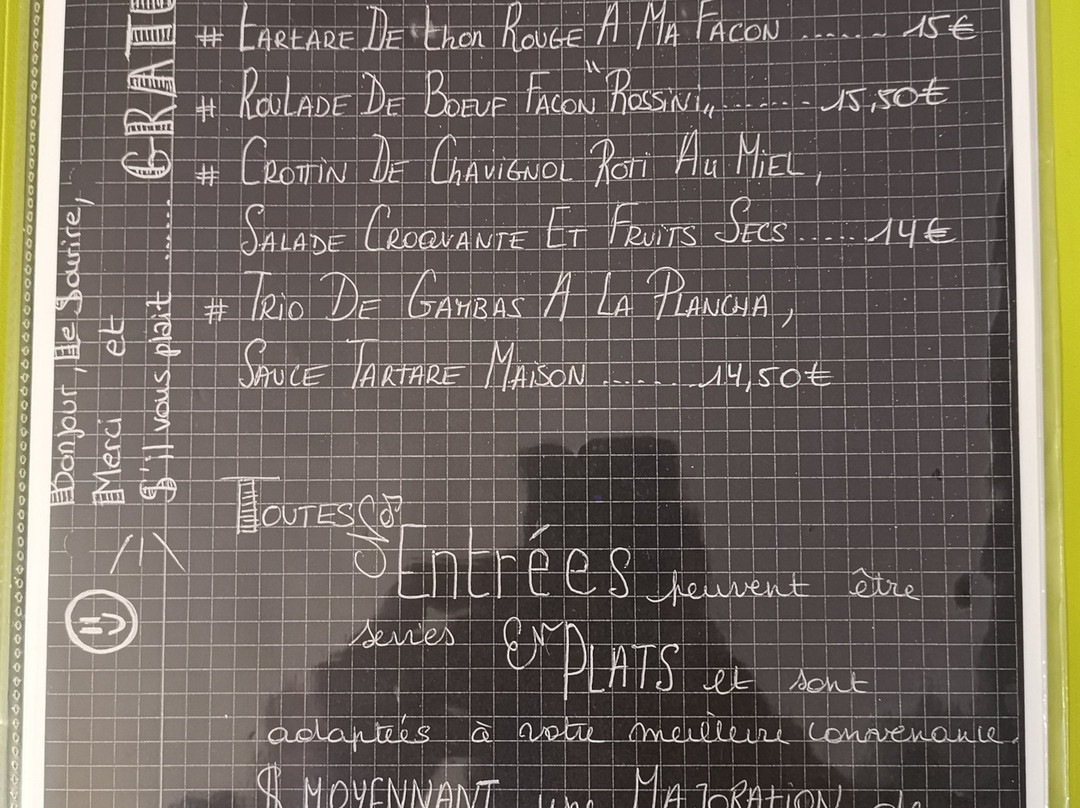 # TARTARE DE thon ROUGE A MA FACON ....... 15€
# ROULADE DE BOEUF FACON "ROSSINI„ ....... 15,50€
# CROTTIN DE CHAVIGNOL ROTI AU MIEL,
SALADE CROQUANTE ET FRUITS SECS ...... 14€
# TRIO DE GAMBAS A LA PLANCHA,
SAUCE TARTARE MAISON ........ 14,50€
TOUTES nos
Entrées peuvent être
servies en PLATS et sont
adaptées à votre meilleure convenance.
$ MOYENNANT une MAJORATION de
Bonjour, le Sourire,
Merci et
S'il vous plait ...... GRAT